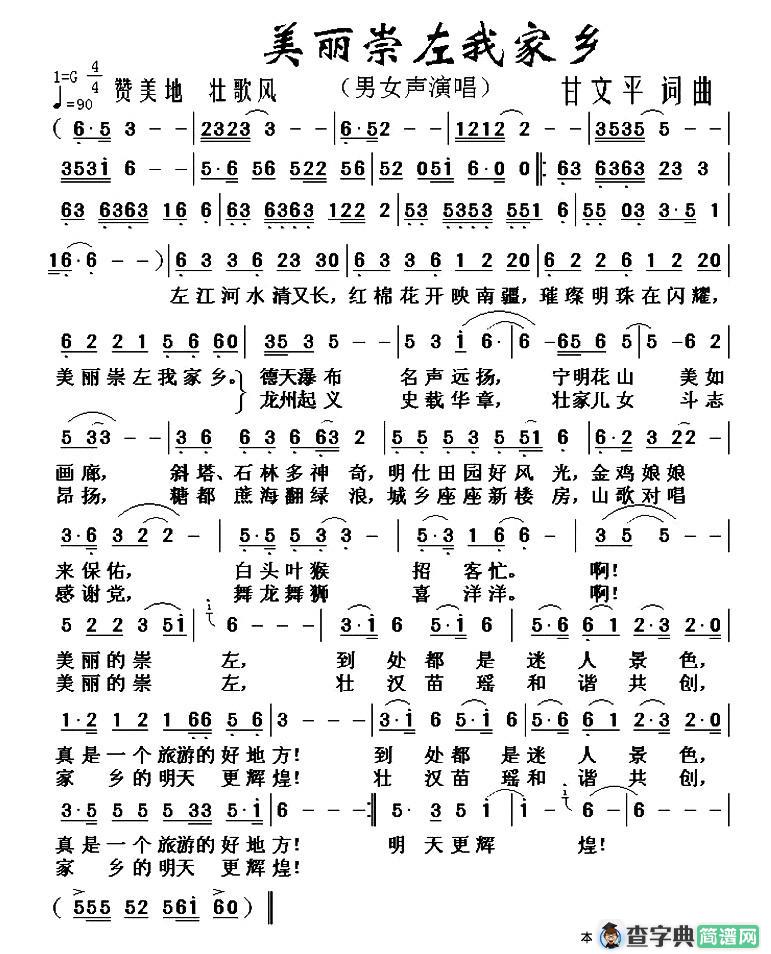 美丽崇左我家乡
1=G 4/4
♩=90 赞美地 壮歌风 (男女声演唱) 甘文平 词曲
( 6·5 3 - - | 2323 3 - - | 6·52 - - | 1212 2 - - | 3535 5 - - |
3531 6 - - | 5·6 56 5522 56 | 52 051 6·0 0 ‖: 63 6363 23 3 |
63 6363 16 6 | 63 6363 122 2 | 53 5353 551 6 | 55 03 3·5 1 |
16·6 - - ) | 6 3 3 6 23 30 | 3 6 3 6 1 2 20 | 6 2 2 6 1 2 20 |
左江河水清又长,红棉花开映南疆,璀璨明珠在闪耀,
6 2 2 1 5 6 60 | 35 3 5 - | 5 3 1 6· - | 6 -65 6 5 | 5 -6 2 |
美丽崇左我家乡。德天瀑布 名声远扬, 宁明花山 美如
龙州起义 史载华章, 壮家儿女 斗志
5 33 - - | 3 6 6 3 6 63 3 | 5 5 5 3 5 51 6 | 6·2 3 22 - |
画廊, 斜塔、石林多神奇,明仕田园好风光,金鸡娘娘
昂扬, 糖都蔗海翻绿浪,城乡座座新楼房,山歌对唱
3·6 3 2 2 - | 5·5 5 3 3 - | 3 - 1 6 6 - | 3 5 5 - |
来保佑, 白头叶猴 招客忙。 啊!
感谢党, 舞龙舞狮 喜洋洋。 啊!
5 2 2 3 51 | 6 - - | 3·1 6 5·1 6 | 5·6 6 1 2 3 2·0 |
美丽的崇左, 到处都是迷人景色,
美丽的崇左, 壮汉苗瑶和谐共创,
1·2 1 2 1 66 5 6 | 3 - - | 3·1 6 5·1 6 | 5·6 6 1 2 3 2·0 |
真是一个旅游的好地方! 到处都是迷人景色,
家乡的明天更辉煌! 壮汉苗瑶和谐共创,
3·5 5 5 5 33 5·1 | 6 - - :‖ 5· 3 5 1 | 1 - 6 | 6 - - ‖
真是一个旅游的好地方! 明天更辉煌!
家乡的明天更辉煌!
( 555 52 561 60 ) ‖
本
查字典简谱网